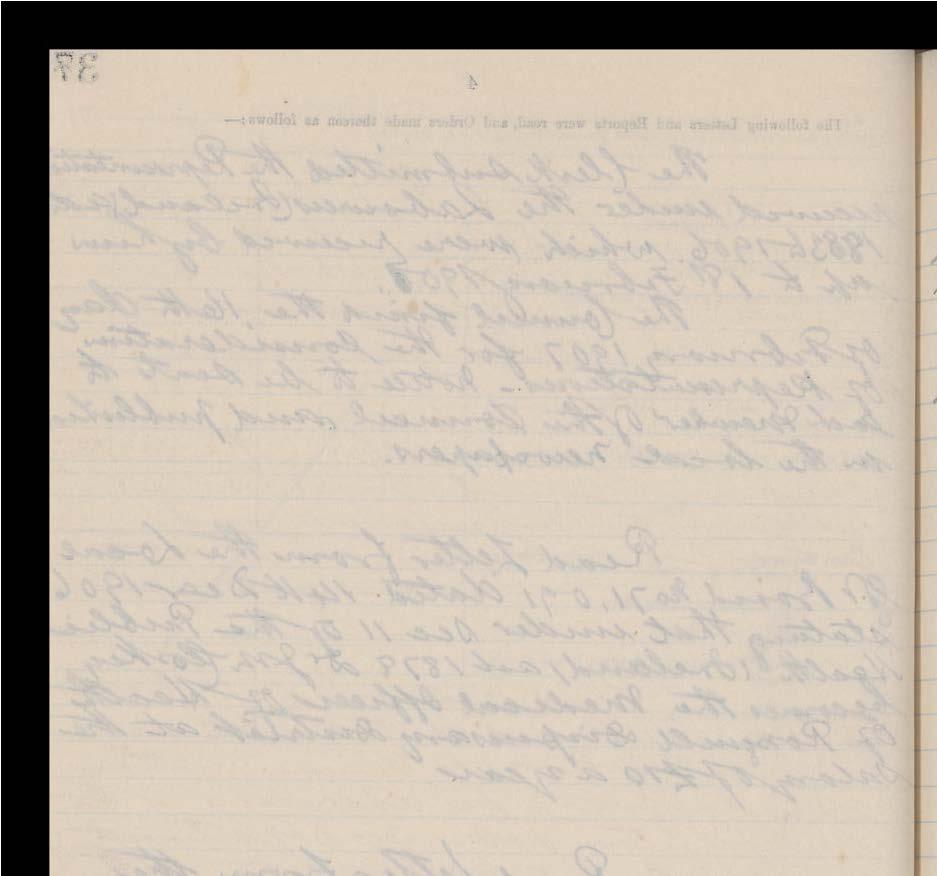 37
4
The following Letters and Reports were read, and Orders made thereon as follows:—
The Clerk submitted the Representations
received under the Labourers (Ireland) Act
1883 to 1906. which were received by him
up to 1st February 1907.
The Council fixed the 16th day
of February 1907 for the Consideration
of Representations - Notice to be sent to
each Member of the Council and published
in the Local newspapers.
Read Letter from the Local
Govt Board No 71,091 dated 14th Decr 1906
stating that under Sec 11 of the Public
Health (Ireland) act 1879 Dr Corkey
becomes the Medical Officer of Health
of Dispensary District at the
Salary of £20 a year
Read letter from the